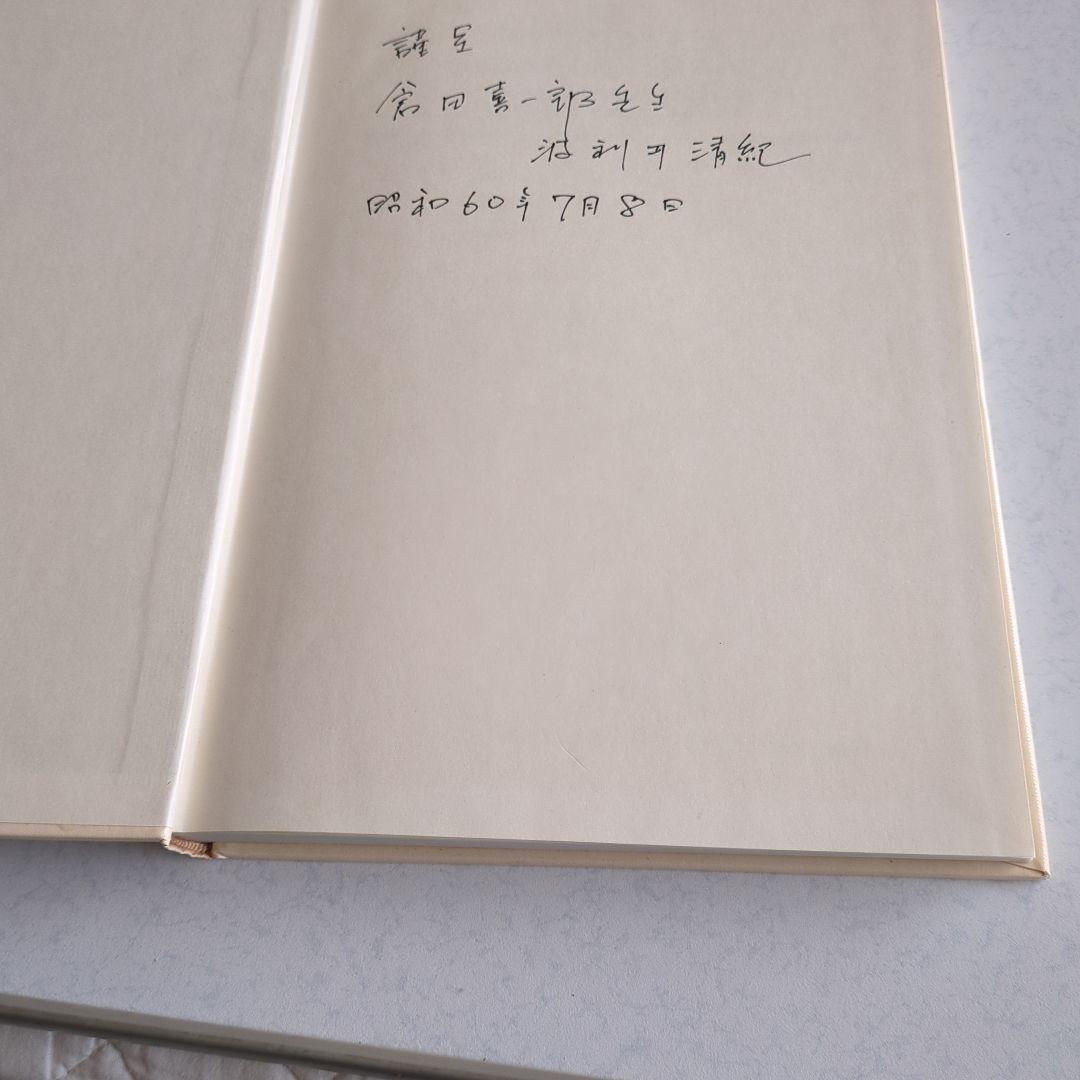 謹呈
倉田喜一郎先生
波利井清紀
昭和60年7月8日